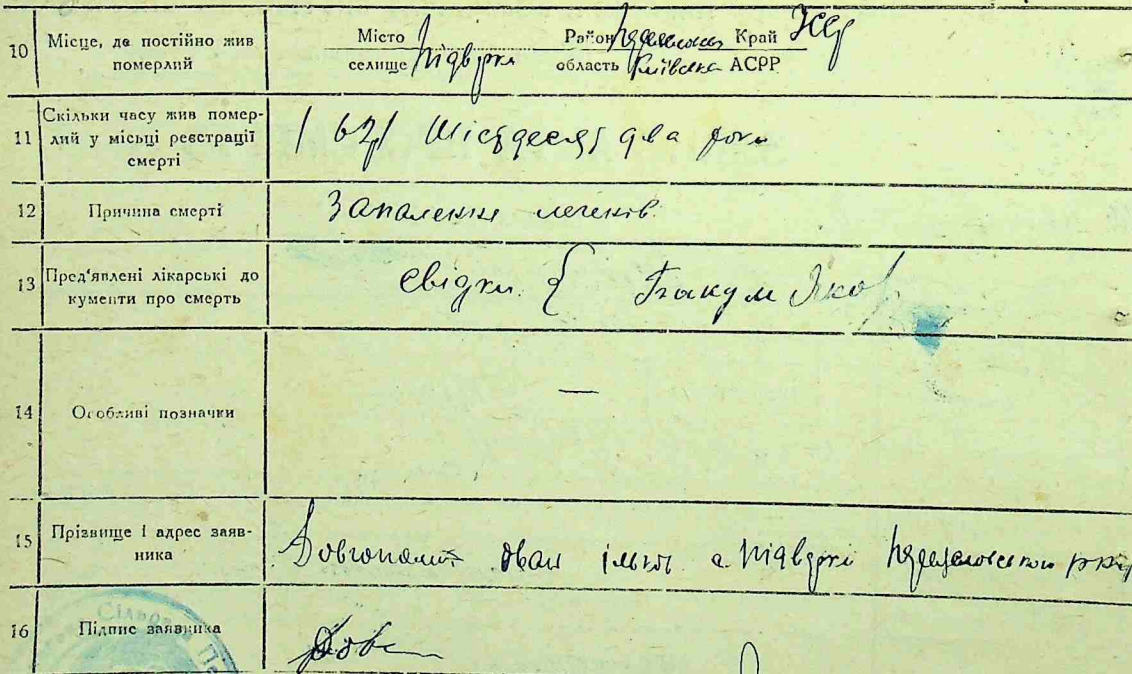 10 Місце, де постійно жив померлий
Місто селище Підвірки Район область Київська Край АСРР УСРР
11 Скільки часу жив помер-
лий у місці реєстрації
смерті
/62/ Шістдесят два роки
12 Причина смерті
Запалення легенів
13 Пред'явлені лікарські до
кументи про смерть
Свідки { Бакум Яко
14 Особливі позначки
—
15 Прізвище і адрес заяв-
ника
Довгополий Іван с. Підвірки
16 Підпис заявника
Довг
Сільська